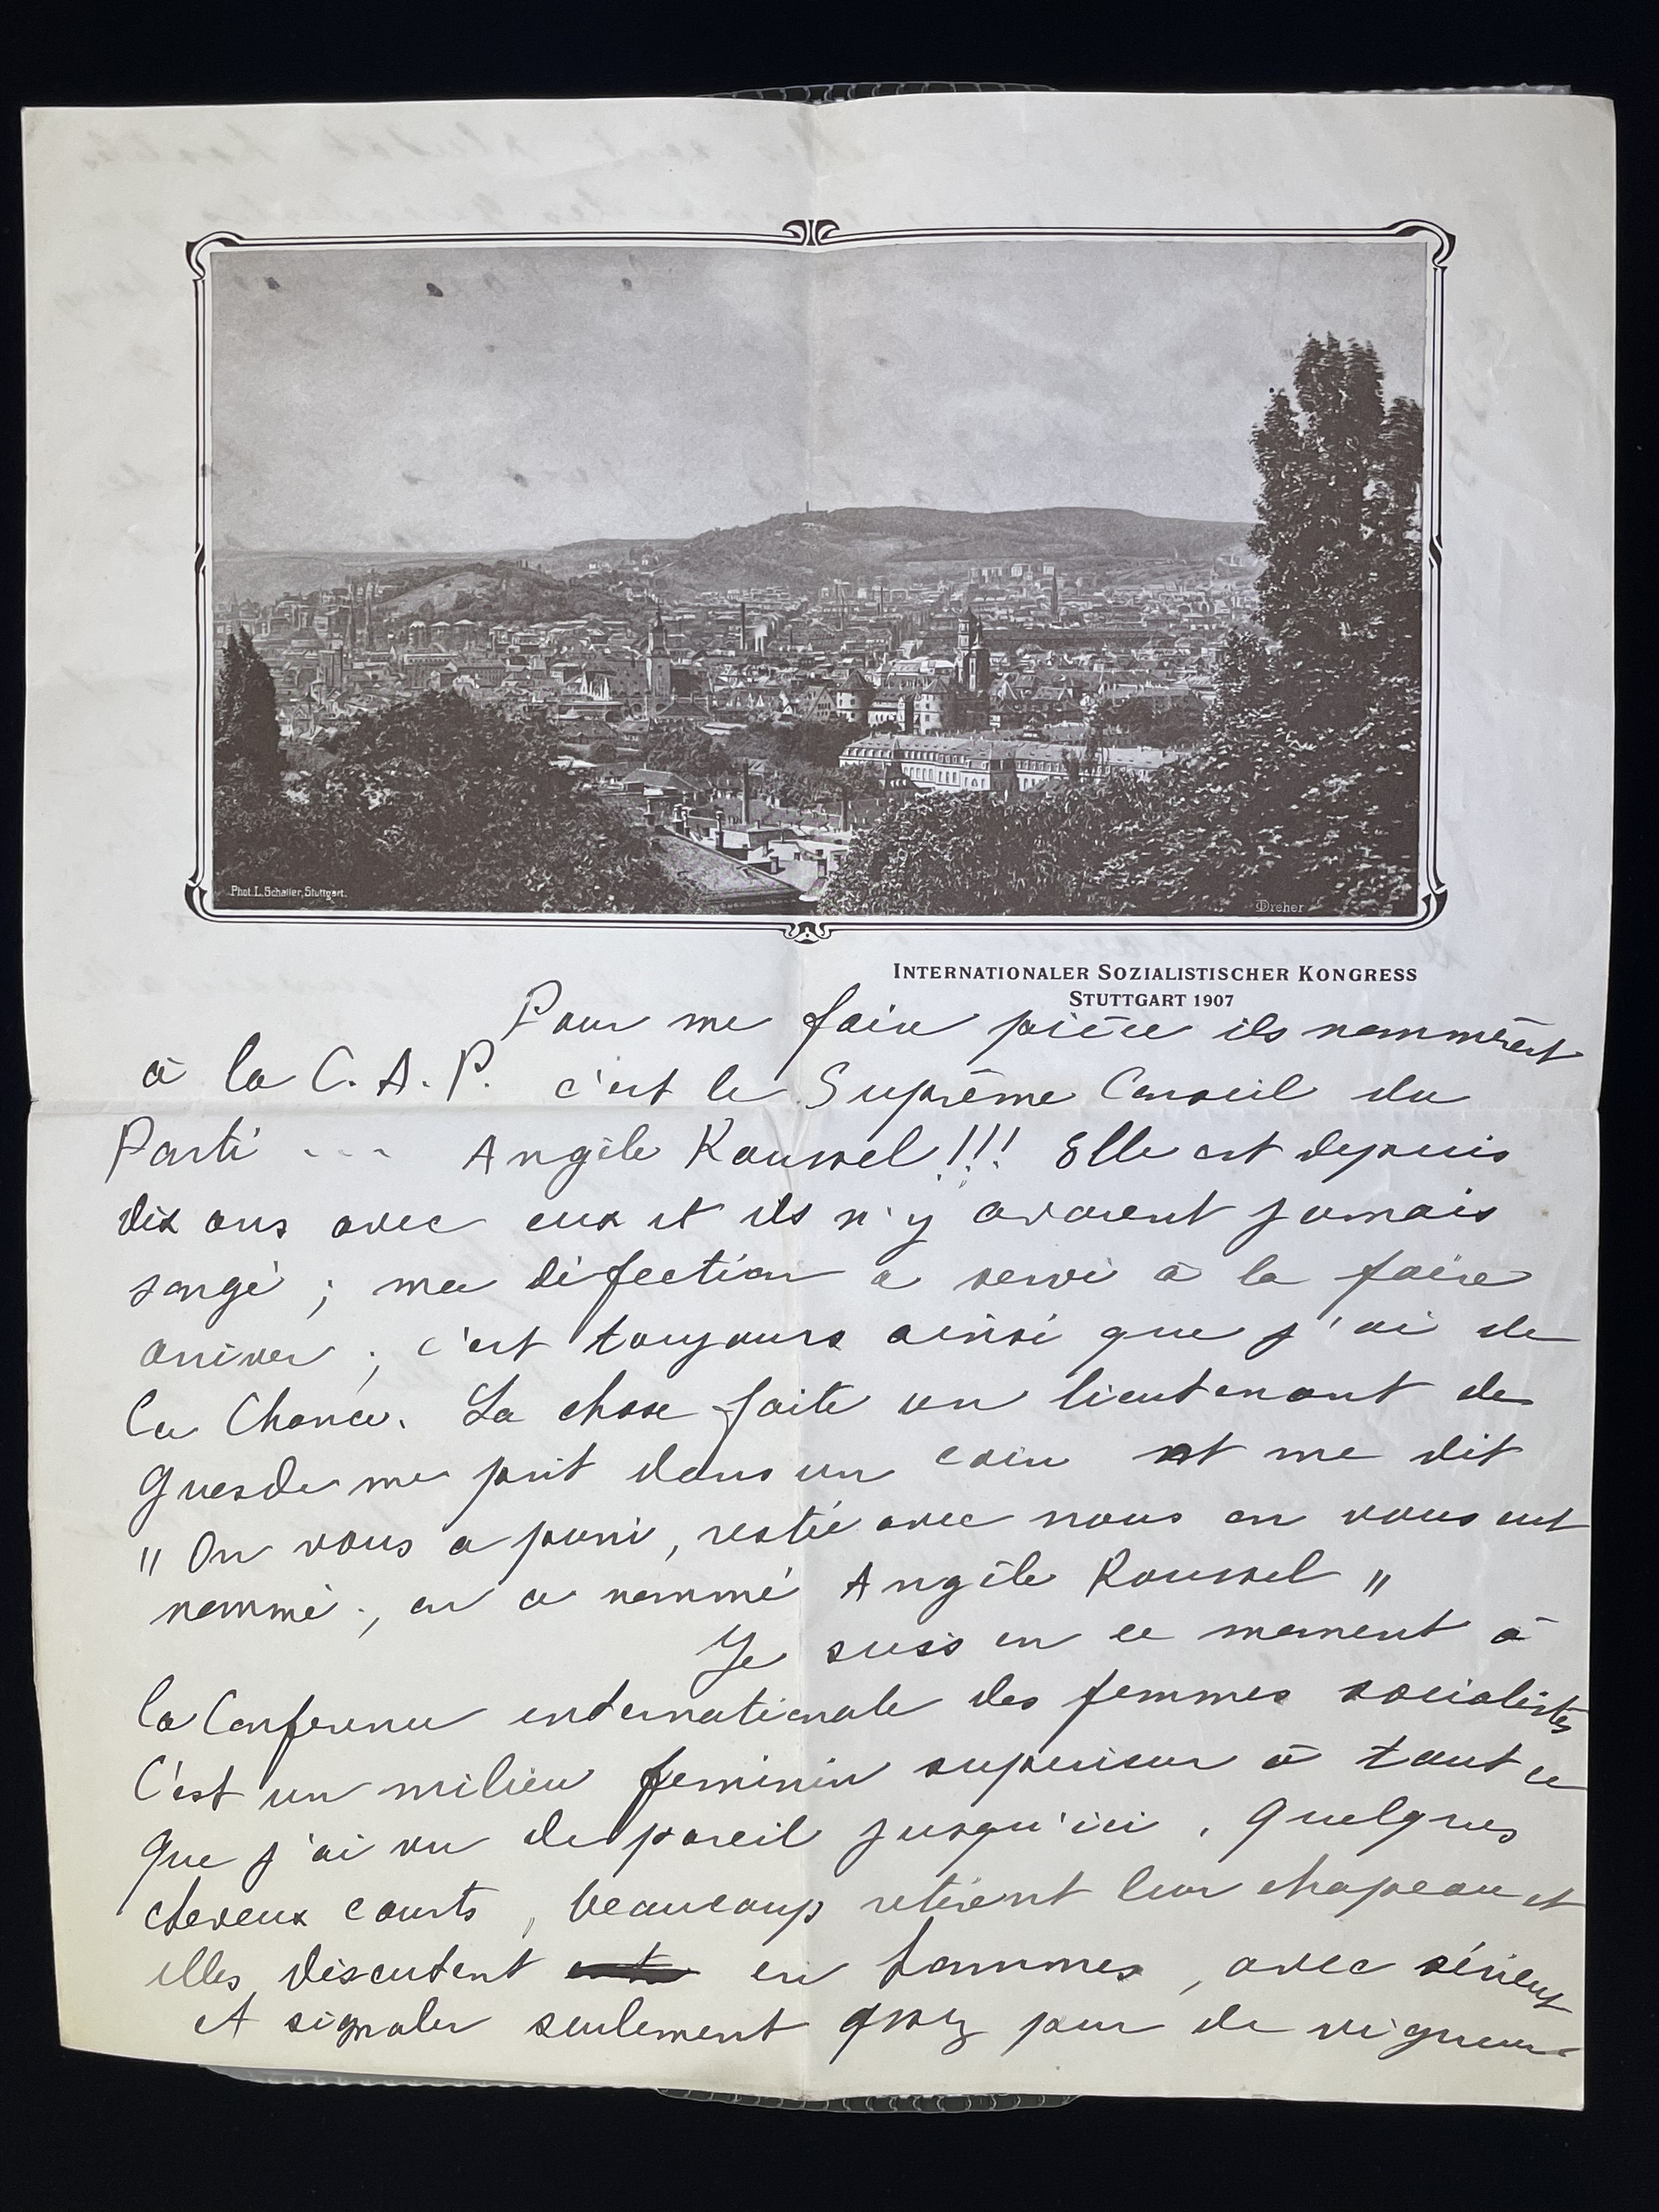 Phot. L. Schaller, Stuttgart.
Dreher
INTERNATIONALER SOZIALISTISCHER KONGRESS
STUTTGART 1907
Pour me faire pièce ils nommèrent
à la C. A. P. c'est le Suprême Conseil du
Parti - - - Angèle Roussel!!! Elle est depuis
dix ans avec eux et ils n'y avaient jamais
songé ; ma défection a servi à la faire
arriver ; c'est toujours ainsi que j'ai de
la Chance. La chose faite un lieutenant de
Guesde me prit dans un coin et me dit
" On vous a puni, restée avec nous on vous eut
nommé ; on a nommé Angèle Roussel "
Je suis en ce moment à
la Conference internationale des femmes socialistes
C'est un milieu feminin superieur à tout ce
que j'ai vu de pareil jusqu'ici . Quelques
cheveux courts , beaucoup retirent leur chapeau et
elles discutent en hommes , avec sérieux
A signaler seulement peu de vigueur